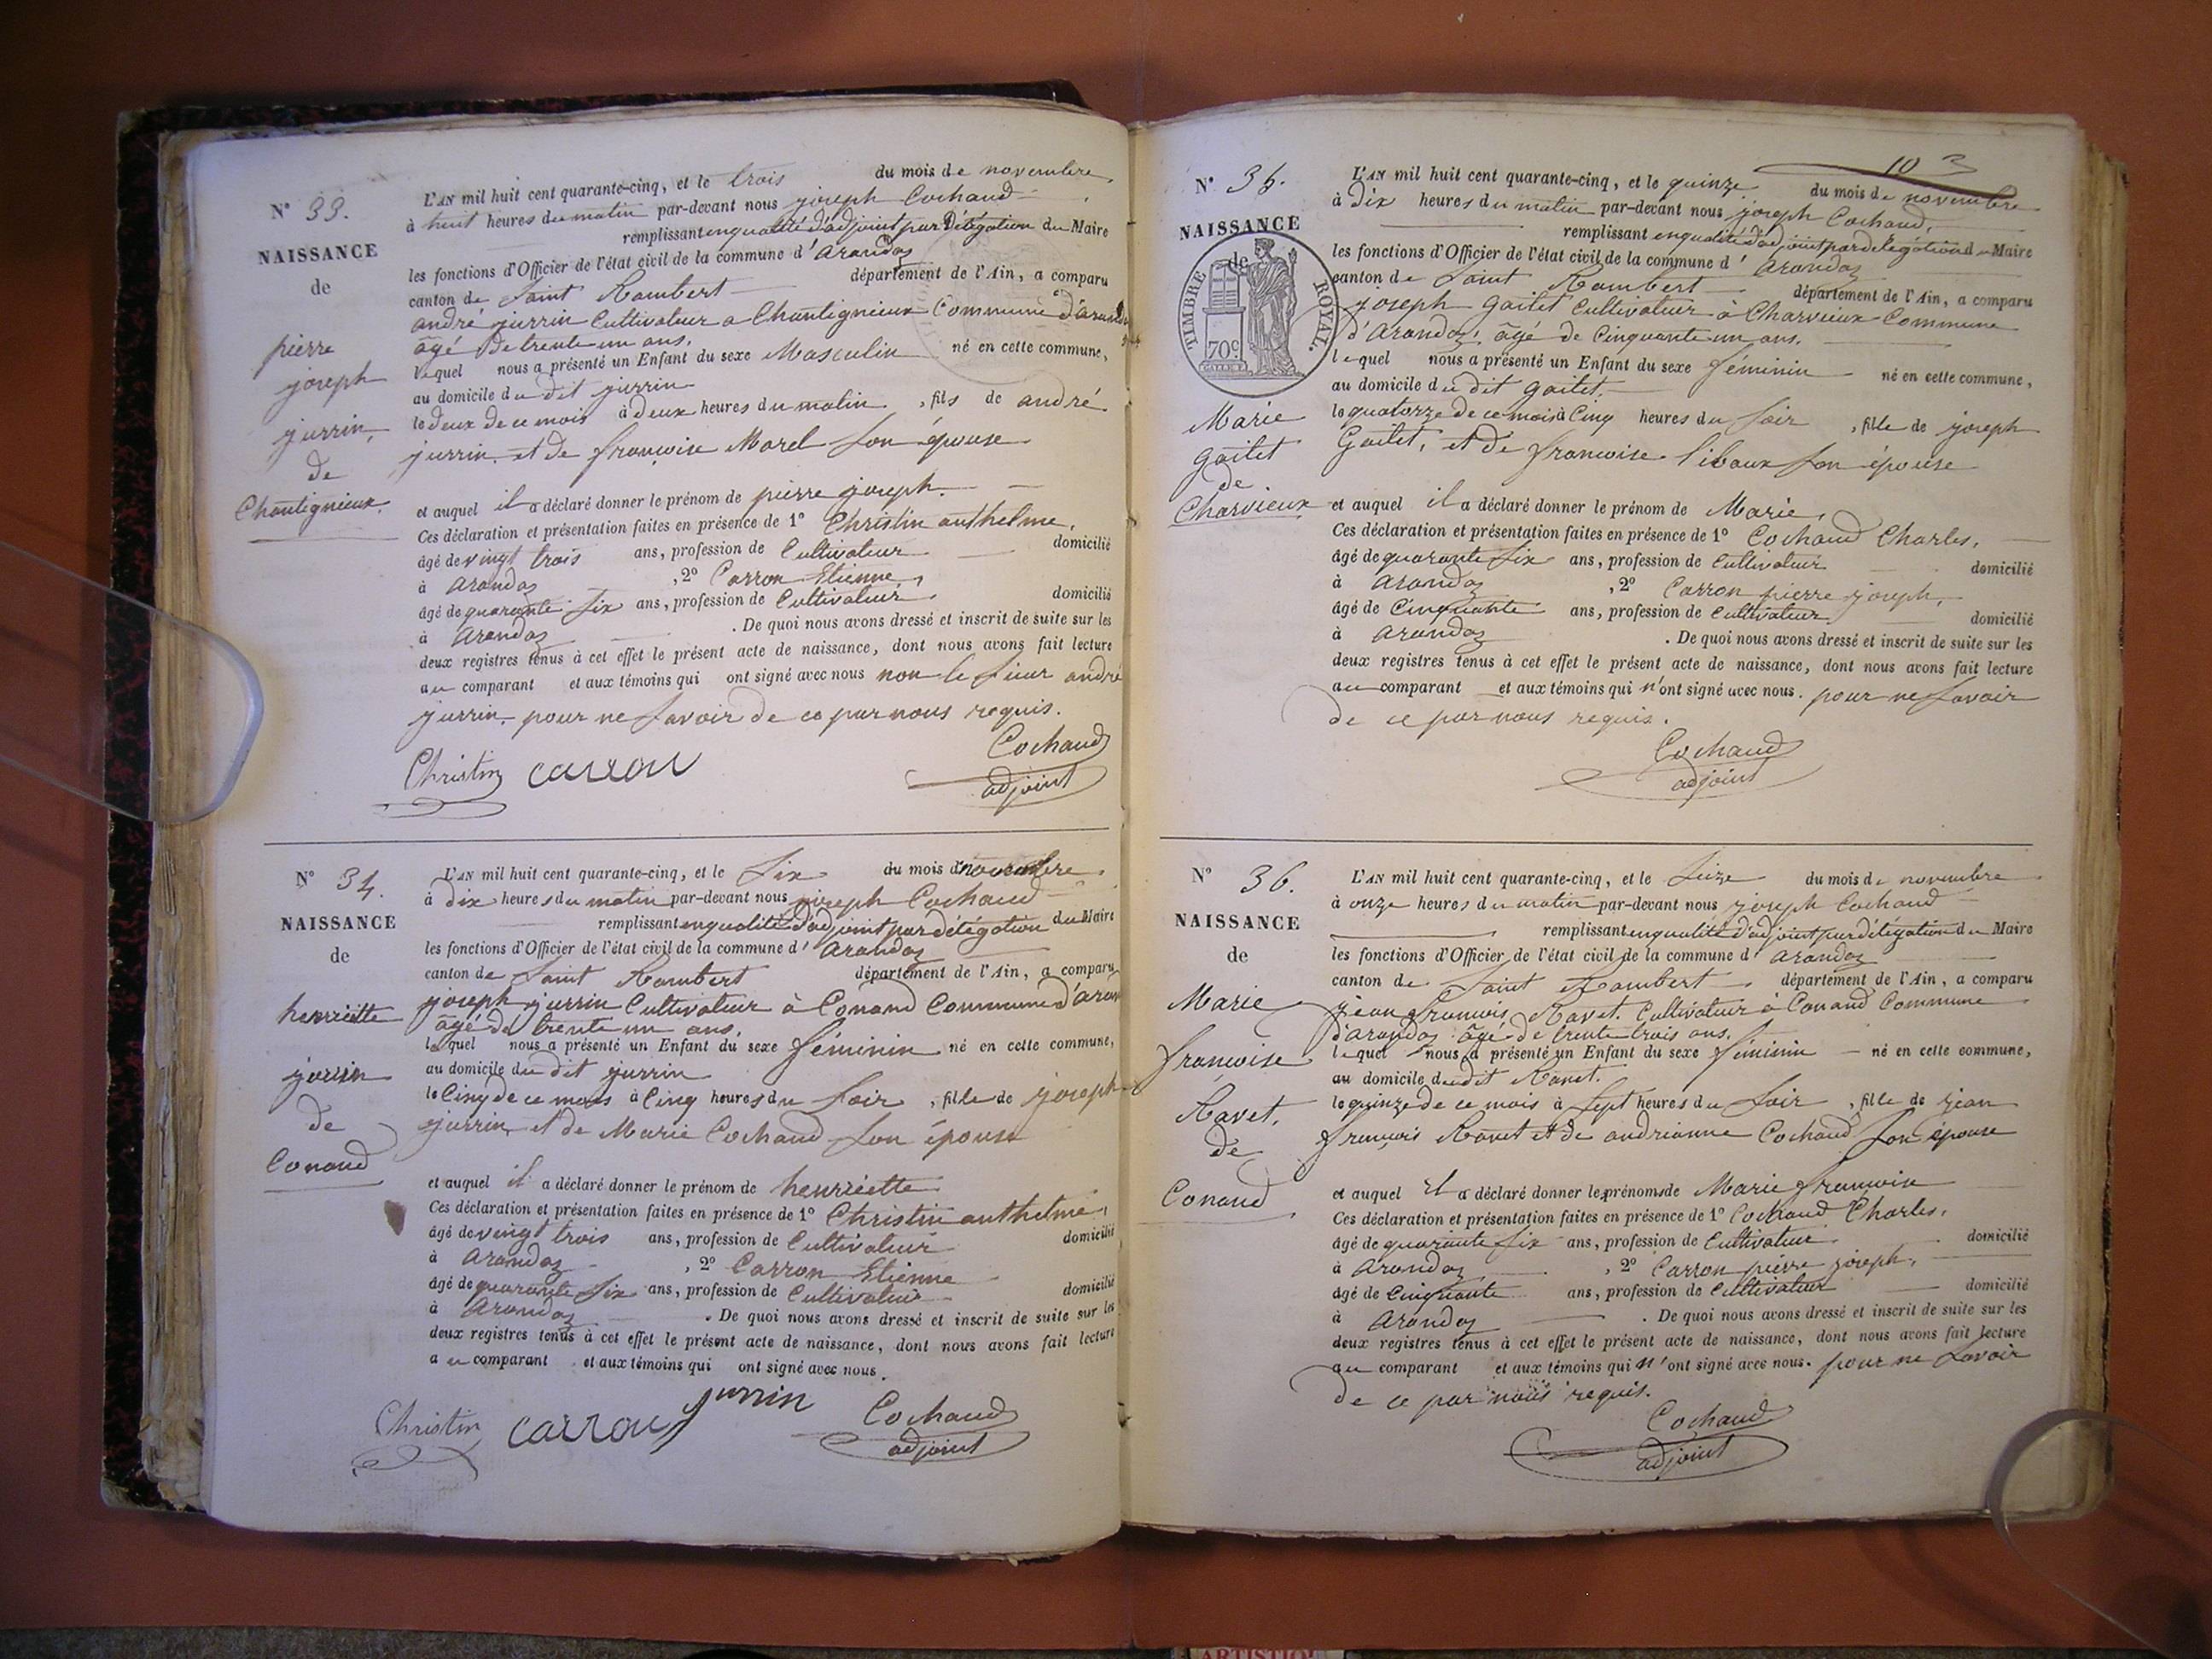 N° 33.
NAISSANCE
de
pierre
joseph
jurrin,
de
Chantignieux.
L'AN mil huit cent quarante-cinq, et le trois du mois de novembre,
à huit heures du matin par-devant nous joseph Cochaud
remplissant en qualité d'adjoint par Délégation du Maire
les fonctions d'Officier de l'état civil de la commune d'Arandas
canton de Saint Rambert département de l'Ain, a comparu
andré jurrin Cultivateur a Chantignieux Commune d'Arandas
âgé de trente un ans.
lequel nous a présenté un Enfant du sexe Masculin né en cette commune,
au domicile du dit jurrin
le deux de ce mois à deux heures du matin, fils de andré
jurrin et de françoise Morel son épouse
et auquel il a déclaré donner le prénom de pierre joseph.
Ces déclaration et présentation faites en présence de 1° Christin anthelme,
âgé de vingt trois ans, profession de Cultivateur domicilié
à Arandas, 2° Carron Etienne,
âgé de quarante six ans, profession de Cultivateur domicilié
à Arandas. De quoi nous avons dressé et inscrit de suite sur les
deux registres tenus à cet effet le présent acte de naissance, dont nous avons fait lecture
au comparant et aux témoins qui ont signé avec nous non le sieur andré
jurrin, pour ne savoir de ce par nous requis.
Christin carron Cochaud
adjoint
N° 34.
NAISSANCE
de
henriette
jurrin
de
Conand
L'AN mil huit cent quarante-cinq, et le six du mois de novembre.
à dix heures du matin par-devant nous joseph Cochaud
remplissant en qualité d'adjoint par délégation du Maire
les fonctions d'Officier de l'état civil de la commune d'Arandas
canton de Saint Rambert département de l'Ain, a comparu
joseph jurrin Cultivateur à Conand Commune d'Aran
âgé de trente un ans.
lequel nous a présenté un Enfant du sexe féminin né en cette commune,
au domicile du dit jurrin
le Cinq de ce mois à Cinq heures du soir, fille de joseph
jurrin, et de Marie Cochaud son épouse
et auquel il a déclaré donner le prénom de henriette
Ces déclaration et présentation faites en présence de 1° Christin anthelme,
âgé de vingt trois ans, profession de Cultivateur domicilié
à Arandas, 2° Carron Etienne
âgé de quarante six ans, profession de Cultivateur domicilié
à Arandas. De quoi nous avons dressé et inscrit de suite sur les
deux registres tenus à cet effet le présent acte de naissance, dont nous avons fait lecture
au comparant et aux témoins qui ont signé avec nous.
Christin carron jurrin Cochaud
adjoint
103
N° 35.
NAISSANCE
de
TIMBRE ROYAL.
70c
Marie
gaitet
de
Charvieux
L'AN mil huit cent quarante-cinq, et le quinze du mois de novembre
à dix heures du matin par-devant nous joseph Cochaud,
remplissant en qualité d'adjoint par délégation du Maire
les fonctions d'Officier de l'état civil de la commune d'Arandas
canton de Saint Rambert département de l'Ain, a comparu
joseph gaitet Cultivateur à Charvieux Commune
d'Arandas, âgé de Cinquante un ans.
lequel nous a présenté un Enfant du sexe féminin né en cette commune,
au domicile du dit gaitet.
le quatorze de ce mois à Cinq heures du soir, fille de joseph
Gaitet, et de francoise libaux son épouse
et auquel il a déclaré donner le prénom de Marie,
Ces déclaration et présentation faites en présence de 1° Cochaud Charles,
âgé de quarante six ans, profession de Cultivateur domicilié
à Arandas, 2° Carron pierre joseph,
âgé de Cinquante ans, profession de Cultivateur domicilié
à Arandas. De quoi nous avons dressé et inscrit de suite sur les
deux registres tenus à cet effet le présent acte de naissance, dont nous avons fait lecture
au comparant et aux témoins qui n'ont signé avec nous. pour ne savoir
de ce par nous requis.
Cochaud
adjoint
N° 36.
NAISSANCE
de
Marie
françoise
Ravet,
de
Conand
L'AN mil huit cent quarante-cinq, et le seize du mois de novembre
à onze heures du matin par-devant nous joseph Cochaud
remplissant en qualité d'adjoint par délégation du Maire
les fonctions d'Officier de l'état civil de la commune d'Arandas
canton de Saint Rambert département de l'Ain, a comparu
jean francois Ravet Cultivateur à Conand Commune
d'arandas âgé de trente trois ans.
lequel nous a présenté un Enfant du sexe féminin né en cette commune,
au domicile du dit Ravet.
le quinze de ce mois à sept heures du soir, fille de jean
françois Ravet et de andrianne Cochaud son épouse
et auquel il a déclaré donner les prénoms de Marie françoise
Ces déclaration et présentation faites en présence de 1° Cochaud Charles,
âgé de quarante six ans, profession de Cultivateur domicilié
à Arandas, 2° Carron pierre joseph,
âgé de Cinquante ans, profession de Cultivateur domicilié
à Arandas. De quoi nous avons dressé et inscrit de suite sur les
deux registres tenus à cet effet le présent acte de naissance, dont nous avons fait lecture
au comparant et aux témoins qui n'ont signé avec nous. pour ne savoir
de ce par nous requis.
Cochaud
adjoint